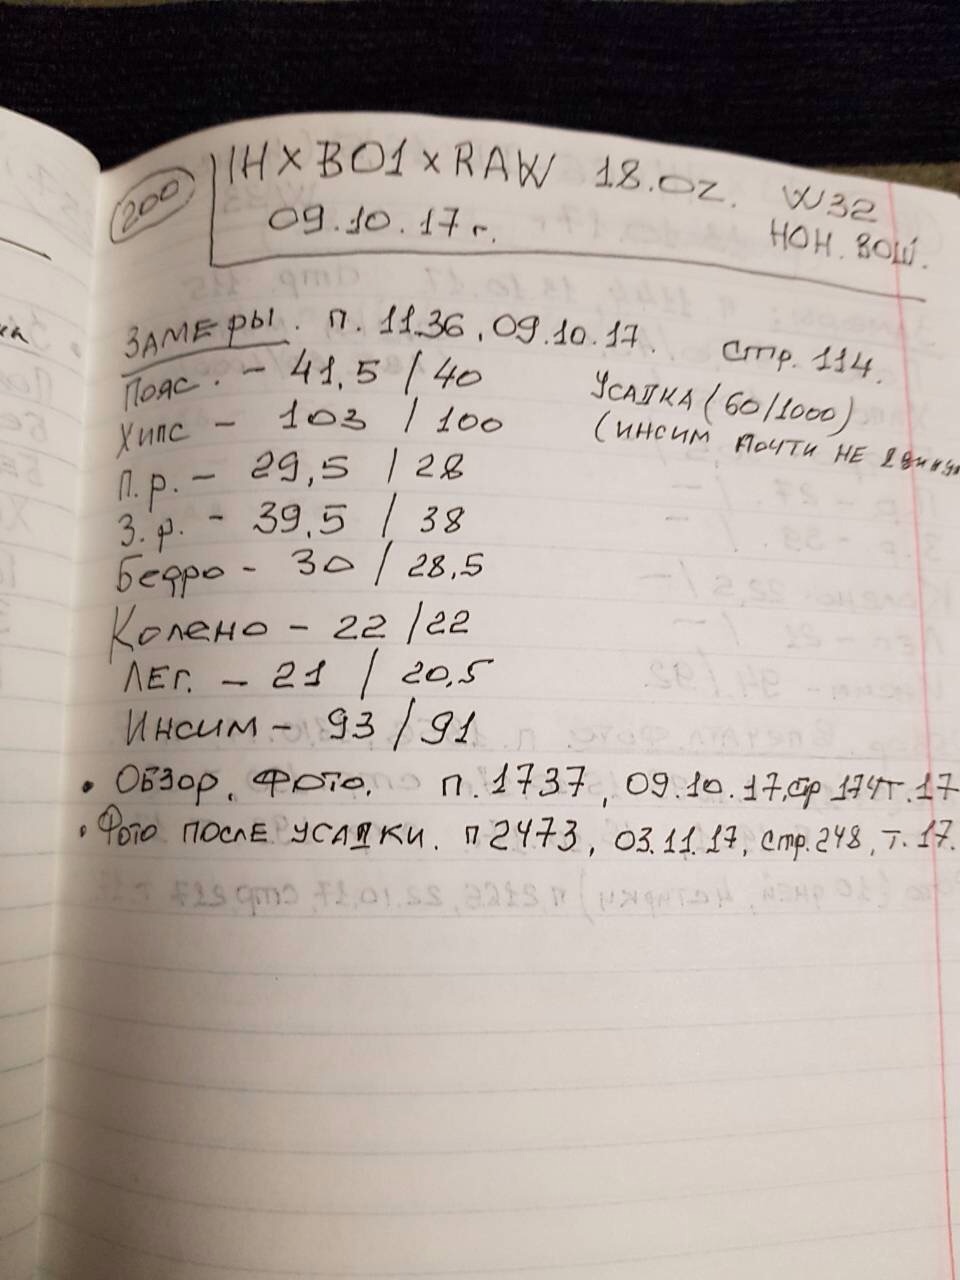 200
IH X BO1 X RAW 18.OZ. W32
09.10.17г. НОН. ВОШ.
ЗАМЕРЫ. П. 1136, 09.10.17. Стр. 114.
Пояс. - 41,5 / 40 УСАДКА (60/1000)
Хипс - 103 / 100 (ИНСИМ ПОЧТИ НЕ
П.р. - 29,5 / 28
З.р. - 39,5 / 38
Бедро - 30 / 28,5
Колено - 22 / 22
ЛЕГ. - 21 / 20,5
Инсим - 93 / 91
• ОБЗОР. ФОТО. П.1737, 09.10.17, стр 174 Т.17
• Фото ПОСЛЕ УСАДКИ. П 2473, 03.11.17, стр.248, т.17.